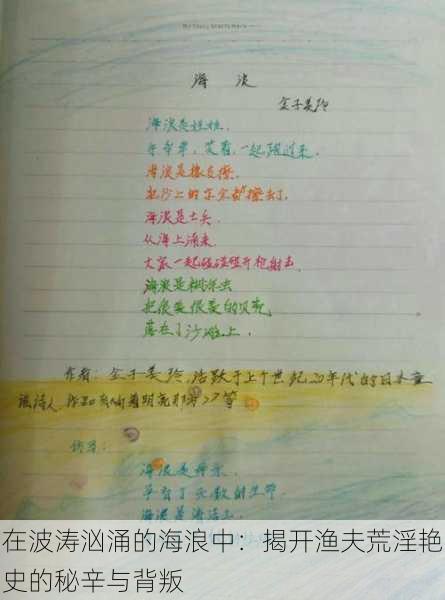 海浪
金子美玲
海浪是娃娃,
手牵手,笑着,一起跑过来.
海浪是橡皮擦.
把沙上的字全都擦去了,
海浪是士兵,
从海上涌来.
大家一起砰砰砰开枪射击
海浪是糊涂虫
把很美很美的贝壳,
落在了沙滩上.
作者:金子美玲,活跃于上个世纪20年代的日本童
谣诗人,
仿写:
海浪是
海浪是清洁工.
在波涛汹涌的海浪中：揭开渔夫荒淫艳
史的秘辛与背叛